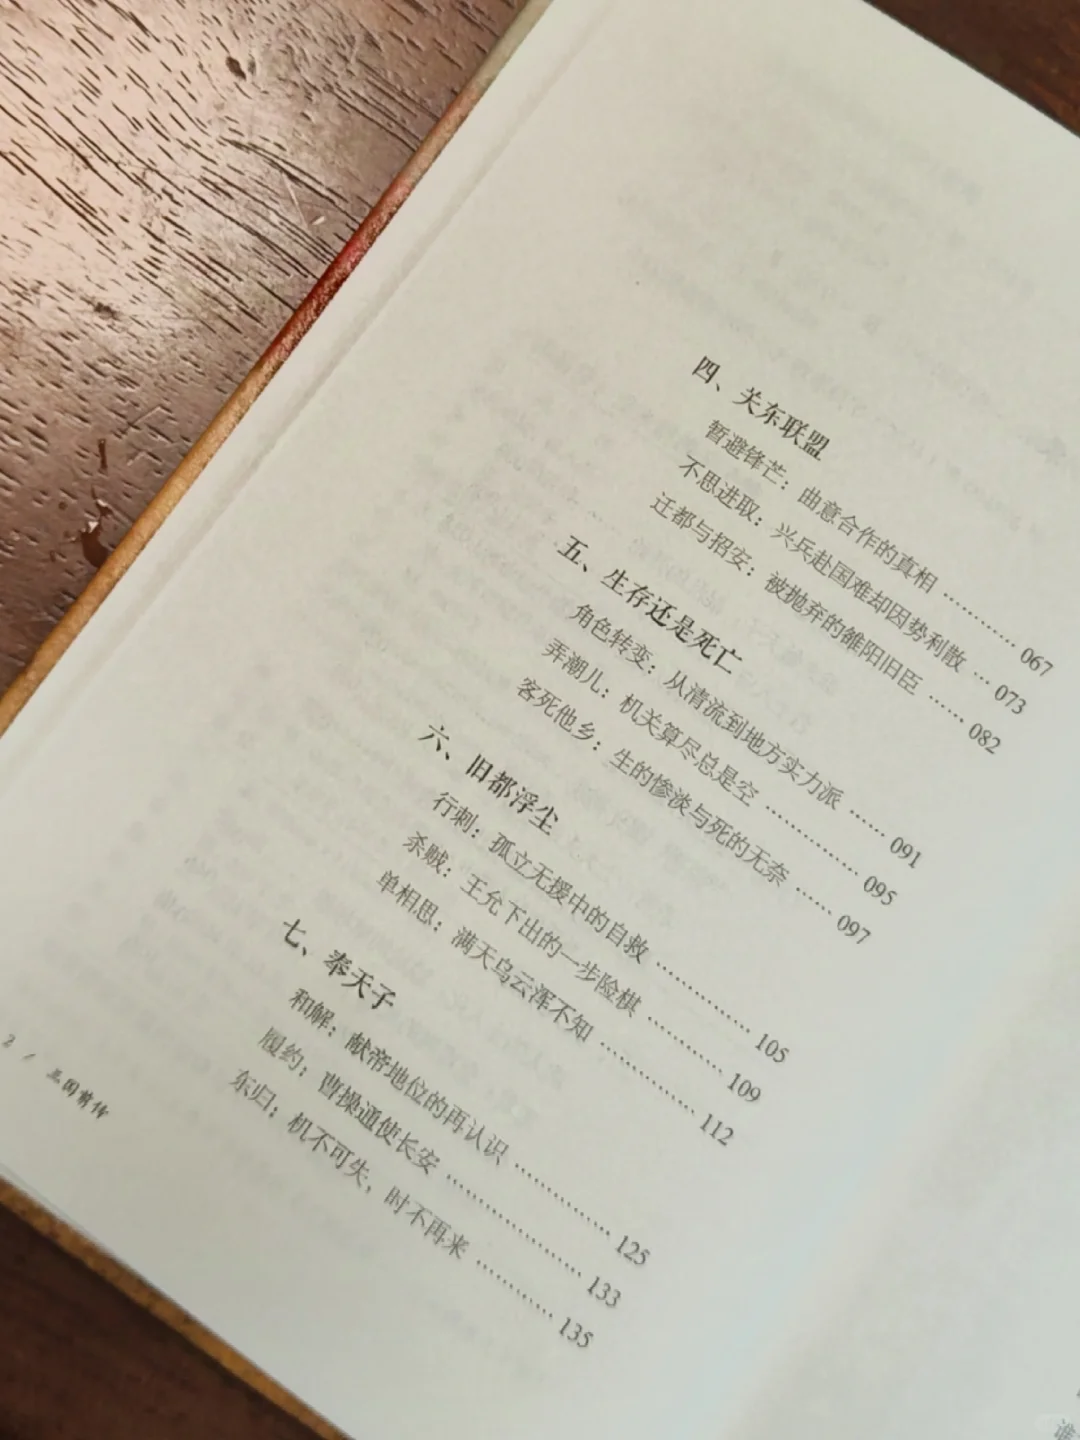 四、关东联盟
暂避锋芒：曲意合作的真相 ………… 067
不思进取：兴兵赴国难却因势利散 … 073
迁都与招安：被抛弃的雒阳旧臣 …… 082
五、生存还是死亡
角色转变：从清流到地方实力派 …… 091
弄潮儿：机关算尽总是空 ………… 095
客死他乡：生的惨淡与死的无奈 …… 097
六、旧都浮尘
行刺：孤立无援中的自救 ………… 105
杀贼：王允下出的一步险棋 ………… 109
单相思：满天乌云浑不知 ………… 112
七、奉天子
和解：献帝地位的再认识 ………… 125
履约：曹操通使长安 ……………… 133
东归：机不可失，时不再来 ………… 135
2 / 三国前传